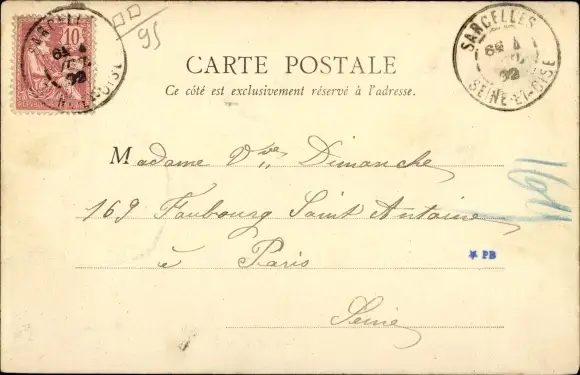 95
10
SARCELLES
SEINE-ET-OISE
SARCELLES
SEINE-ET-OISE
CARTE POSTALE
Ce côté est exclusivement réservé à l'adresse.
Madame Vve Dimanche
169 Faubourg Saint Antoine
à Paris
* PB
Seine